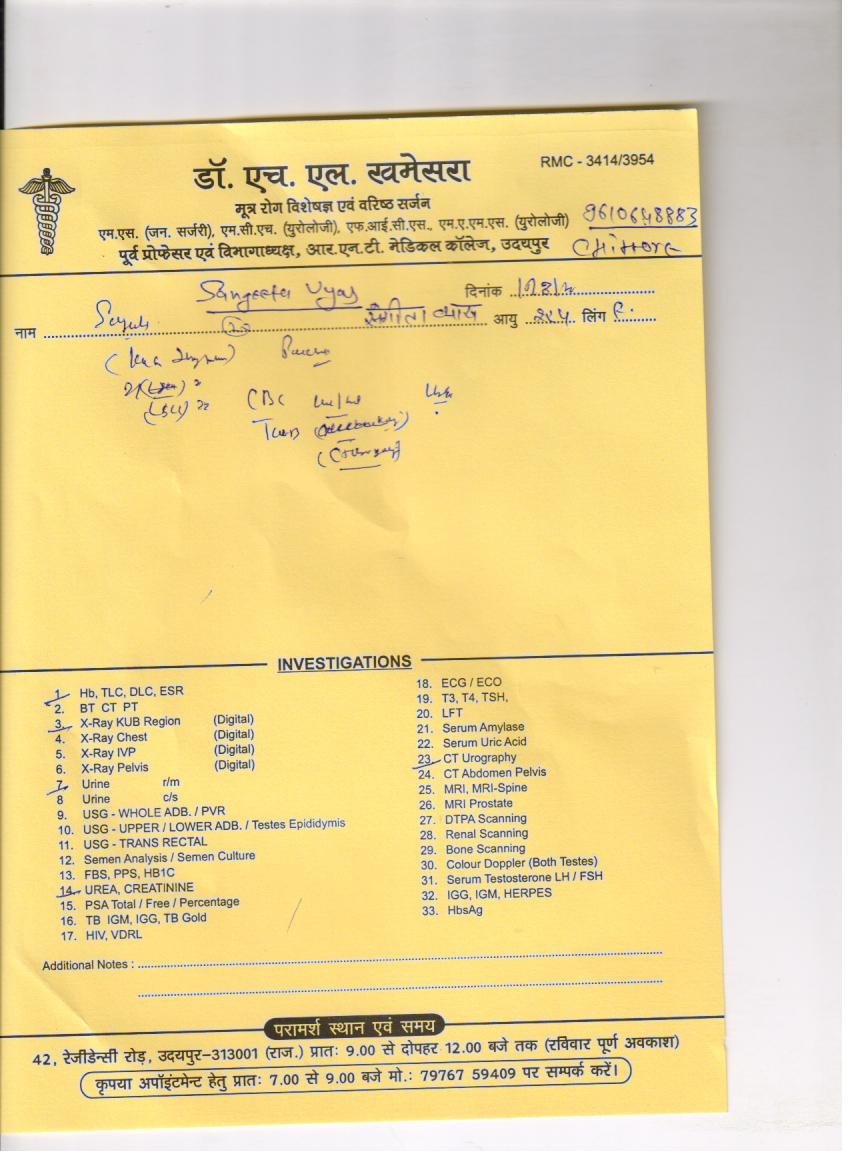 डॉ. एच. एल. खमेसरा
RMC - 3414/3954
मूत्र रोग विशेषज्ञ एवं वरिष्ठ सर्जन
एम.एस. (जन. सर्जरी), एम.सी.एच. (युरोलोजी), एफ.आई.सी.एस., एम.ए.एम.एस. (युरोलोजी)
9610648883
पूर्व प्रोफेसर एवं विभागाध्यक्ष, आर.एन.टी. मेडिकल कॉलेज, उदयपुर
Chittore
Sangeeta Vyas
दिनांक
नाम संगीता व्यास आयु लिंग
CBC
INVESTIGATIONS
1. Hb, TLC, DLC, ESR
2. BT CT PT
3. X-Ray KUB Region (Digital)
4. X-Ray Chest (Digital)
5. X-Ray IVP (Digital)
6. X-Ray Pelvis (Digital)
7. Urine r/m
8 Urine c/s
9. USG - WHOLE ADB. / PVR
10. USG - UPPER / LOWER ADB. / Testes Epididymis
11. USG - TRANS RECTAL
12. Semen Analysis / Semen Culture
13. FBS, PPS, HB1C
14. UREA, CREATININE
15. PSA Total / Free / Percentage
16. TB IGM, IGG, TB Gold
17. HIV, VDRL
18. ECG / ECO
19. T3, T4, TSH,
20. LFT
21. Serum Amylase
22. Serum Uric Acid
23. CT Urography
24. CT Abdomen Pelvis
25. MRI, MRI-Spine
26. MRI Prostate
27. DTPA Scanning
28. Renal Scanning
29. Bone Scanning
30. Colour Doppler (Both Testes)
31. Serum Testosterone LH / FSH
32. IGG, IGM, HERPES
33. HbsAg
Additional Notes :
परामर्श स्थान एवं समय
42, रेजीडेन्सी रोड़, उदयपुर-313001 (राज.) प्रातः 9.00 से दोपहर 12.00 बजे तक (रविवार पूर्ण अवकाश)
कृपया अपॉइंटमेन्ट हेतु प्रातः 7.00 से 9.00 बजे मो.: 79767 59409 पर सम्पर्क करें।